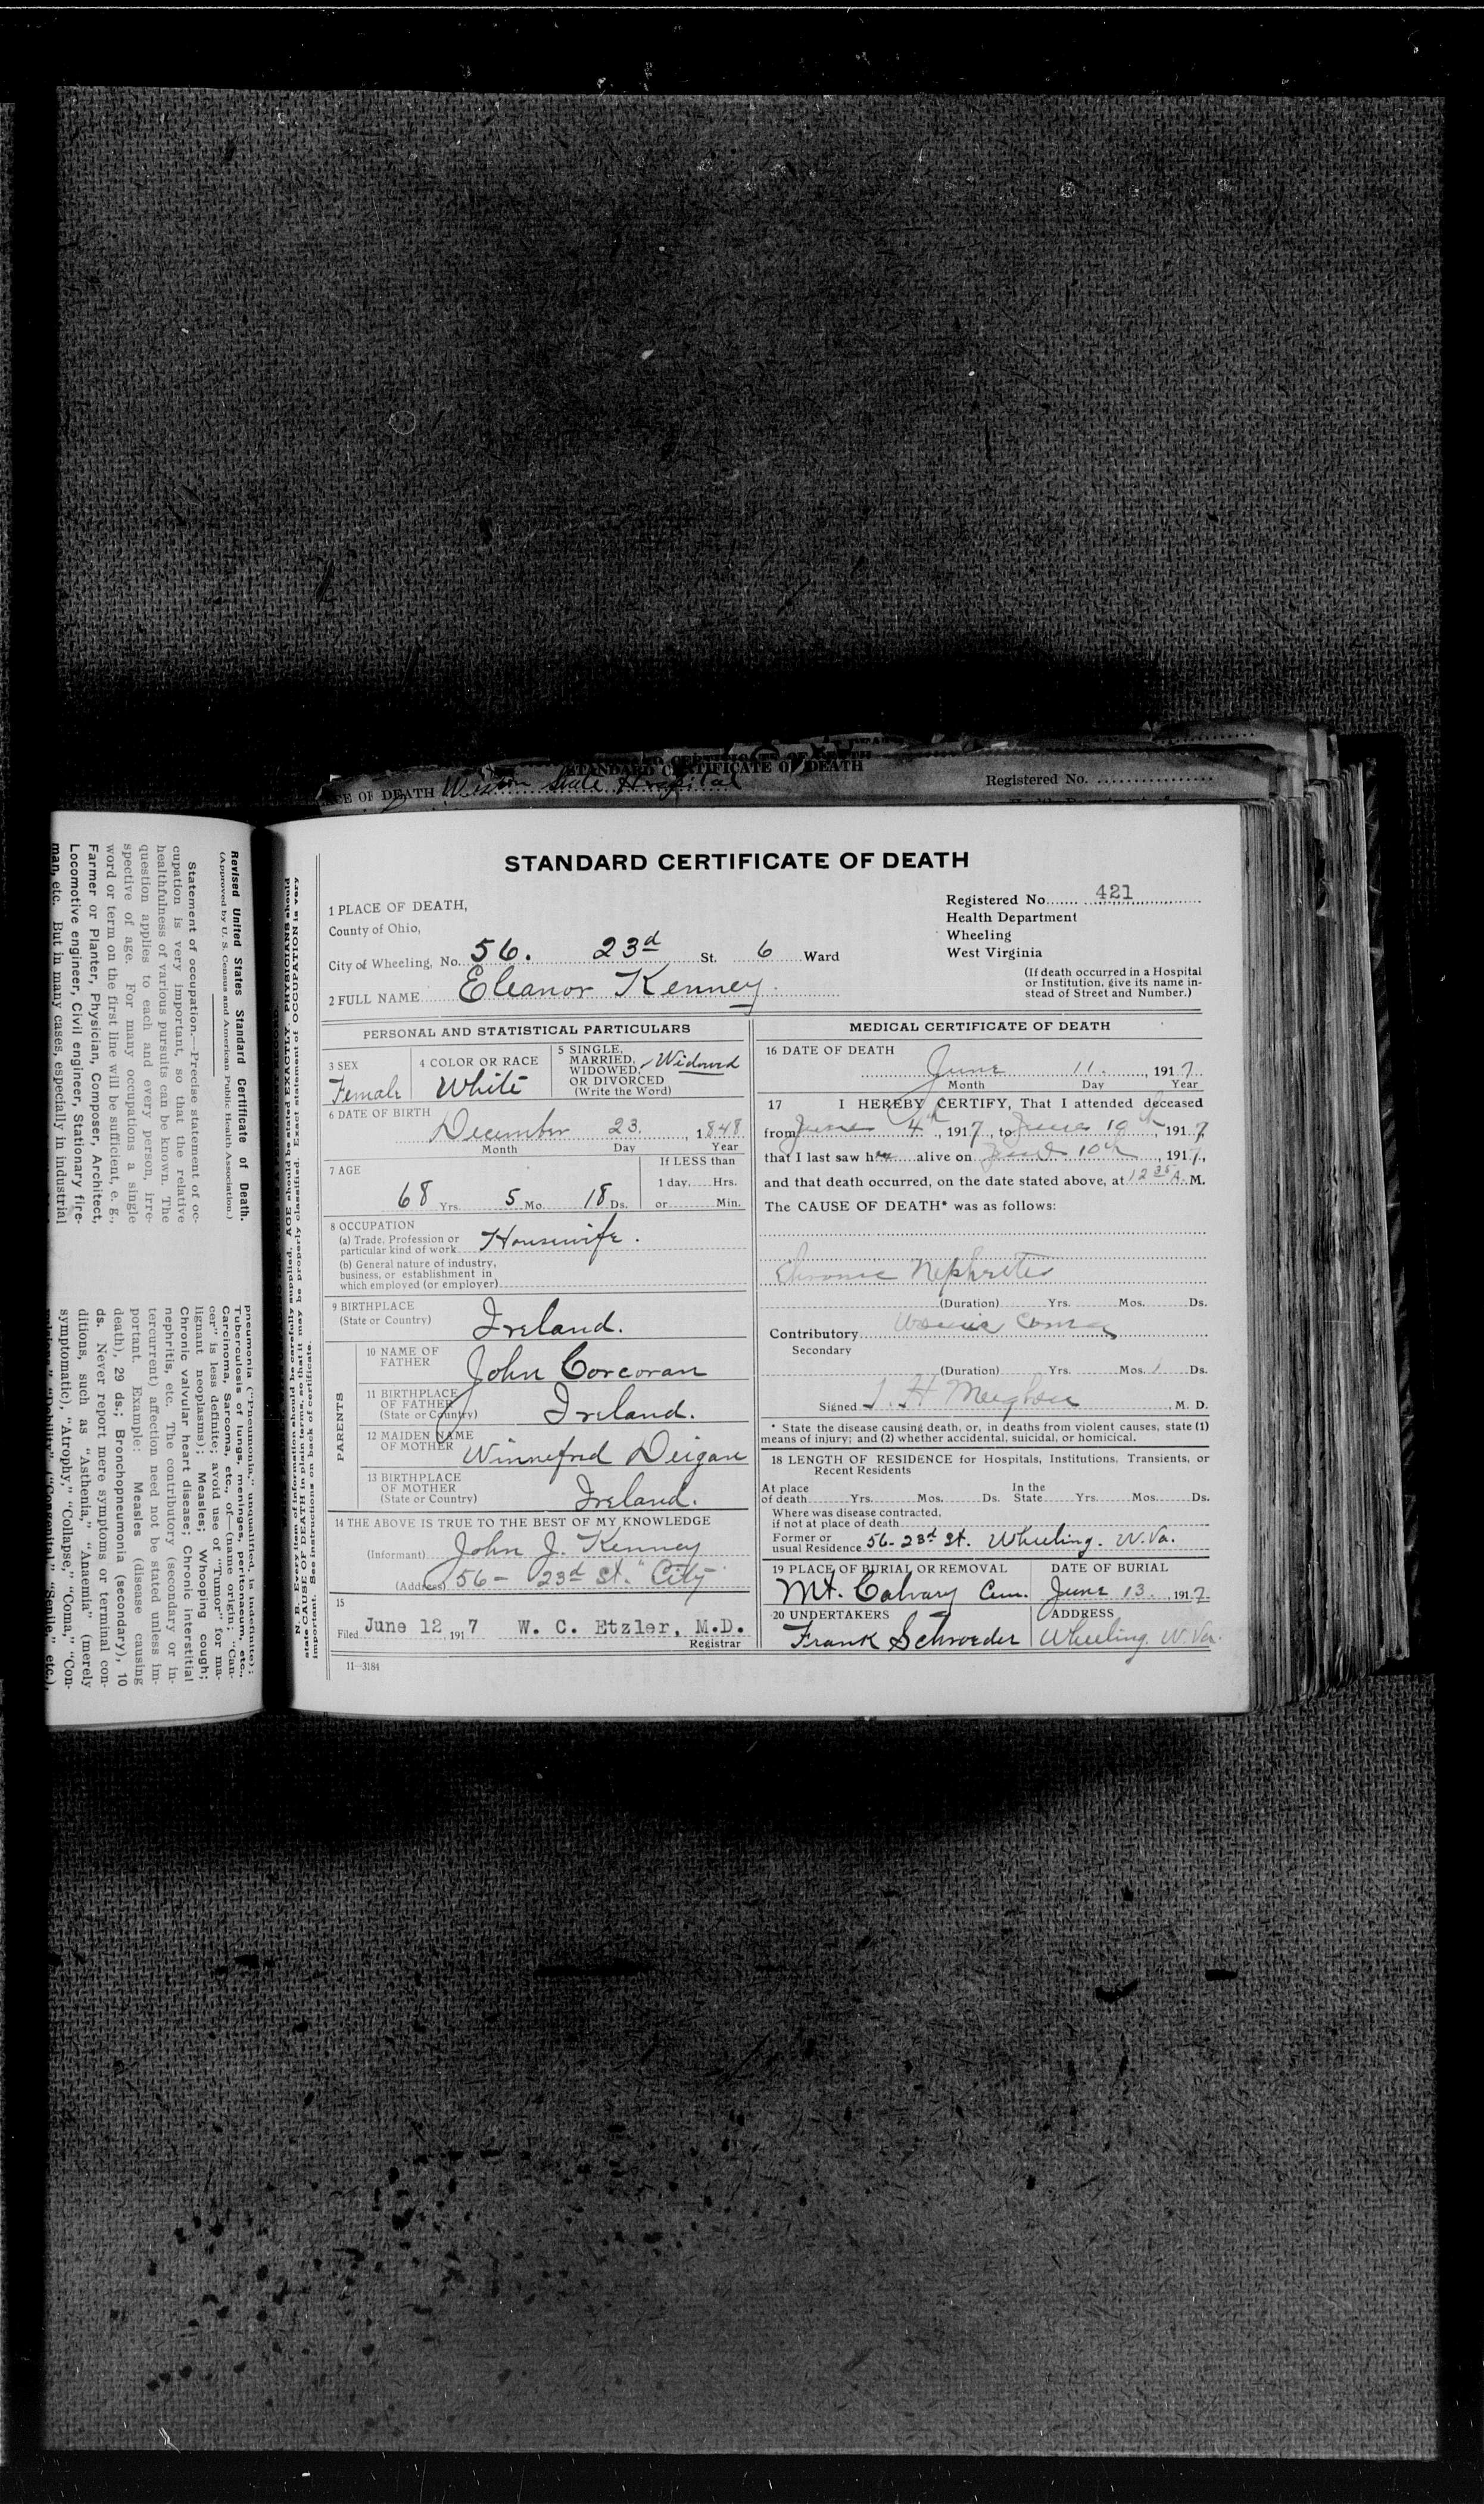 STANDARD CERTIFICATE OF DEATH
CE OF DEATH Weston State Hospital
Registered No.
Revised United States Standard Certificate of Death.
(Approved by U. S. Census and American Public Health Association.)
Statement of occupation.—Precise statement of oc-
cupation is very important, so that the relative
healthfulness of various pursuits can be known. The
question applies to each and every person, irre-
spective of age. For many occupations a single
word or term on the first line will be sufficient, e. g.,
Farmer or Planter, Physician, Composer, Architect,
Locomotive engineer, Civil engineer, Stationary fire-
man, etc. But in many cases, especially in industrial
pneumonia ("Pneumonia," unqualified is indefinite);
Tuberculosis of lungs, meninges, peritonaeum, etc.,
Carcinoma, Sarcoma, etc., of—(name origin; "Can-
cer" is less definite; avoid use of "Tumor" for ma-
lignant neoplasms); Measles; Whooping cough;
Chronic valvular heart disease; Chronic interstitial
nephritis, etc. The contributory (secondary or in-
tercurrent) affection need not be stated unless im-
portant. Example: Measles (disease causing
death), 29 ds.; Bronchopneumonia (secondary), 10
ds. Never report mere symptoms or terminal con-
ditions, such as "Asthenia," "Anaemia" (merely
symptomatic), "Atrophy," "Collapse," "Coma," "Con-
vulsions," "Debility" ("Congenital," "Senile," etc.),
N. B.—Every item of information should be carefully supplied. AGE should be stated EXACTLY. PHYSICIANS should
state CAUSE OF DEATH in plain terms, so that it may be properly classified. Exact statement of OCCUPATION is very
important. See instructions on back of certificate.
STANDARD CERTIFICATE OF DEATH
1 PLACE OF DEATH,
County of Ohio,
City of Wheeling, No. 56. 23d St. 6 Ward
2 FULL NAME Eleanor Kenney.
Registered No. 421
Health Department
Wheeling
West Virginia
(If death occurred in a Hospital
or Institution, give its name in-
stead of Street and Number.)
PERSONAL AND STATISTICAL PARTICULARS
3 SEX
Female
4 COLOR OR RACE
White
5 SINGLE,
MARRIED,
WIDOWED,
OR DIVORCED
(Write the Word)
Widowed
6 DATE OF BIRTH
December 23, 1848
Month Day Year
7 AGE
68 Yrs. 5 Mo. 18 Ds.
If LESS than
1 day, Hrs.
or Min.
8 OCCUPATION
(a) Trade, Profession or
particular kind of work Housewife.
(b) General nature of industry,
business, or establishment in
which employed (or employer)
9 BIRTHPLACE
(State or Country)
Ireland.
PARENTS
10 NAME OF
FATHER
John Corcoran
11 BIRTHPLACE
OF FATHER
(State or Country)
Ireland.
12 MAIDEN NAME
OF MOTHER
Winnefred Deigan
13 BIRTHPLACE
OF MOTHER
(State or Country)
Ireland.
14 THE ABOVE IS TRUE TO THE BEST OF MY KNOWLEDGE
(Informant) John J. Kenney
(Address) 56- 23d St. City
15
Filed June 12 1917 W. C. Etzler, M.D.
Registrar
11—3184
MEDICAL CERTIFICATE OF DEATH
16 DATE OF DEATH
June 11, 1917.
Month Day Year
17 I HEREBY CERTIFY, That I attended deceased
from June 4th, 1917, to June 10th, 1917,
that I last saw her alive on June 10th, 1917,
and that death occurred, on the date stated above, at 12 35 A. M.
The CAUSE OF DEATH* was as follows:
Chronic Nephritis
(Duration) Yrs. Mos. Ds.
Contributory Uremic Coma
Secondary
(Duration) Yrs. Mos. 1 Ds.
Signed H , M. D.
* State the disease causing death, or, in deaths from violent causes, state (1)
means of injury; and (2) whether accidental, suicidal, or homicidal.
18 LENGTH OF RESIDENCE for Hospitals, Institutions, Transients, or
Recent Residents
At place
of death Yrs. Mos. Ds. In the
State Yrs. Mos. Ds.
Where was disease contracted,
if not at place of death
Former or
usual Residence 56-23d St. Wheeling. W.Va.
19 PLACE OF BURIAL OR REMOVAL
Mt. Calvary Cem.
DATE OF BURIAL
June 13, 1917.
20 UNDERTAKERS
Frank Schroeder
ADDRESS
Wheeling. W.Va.